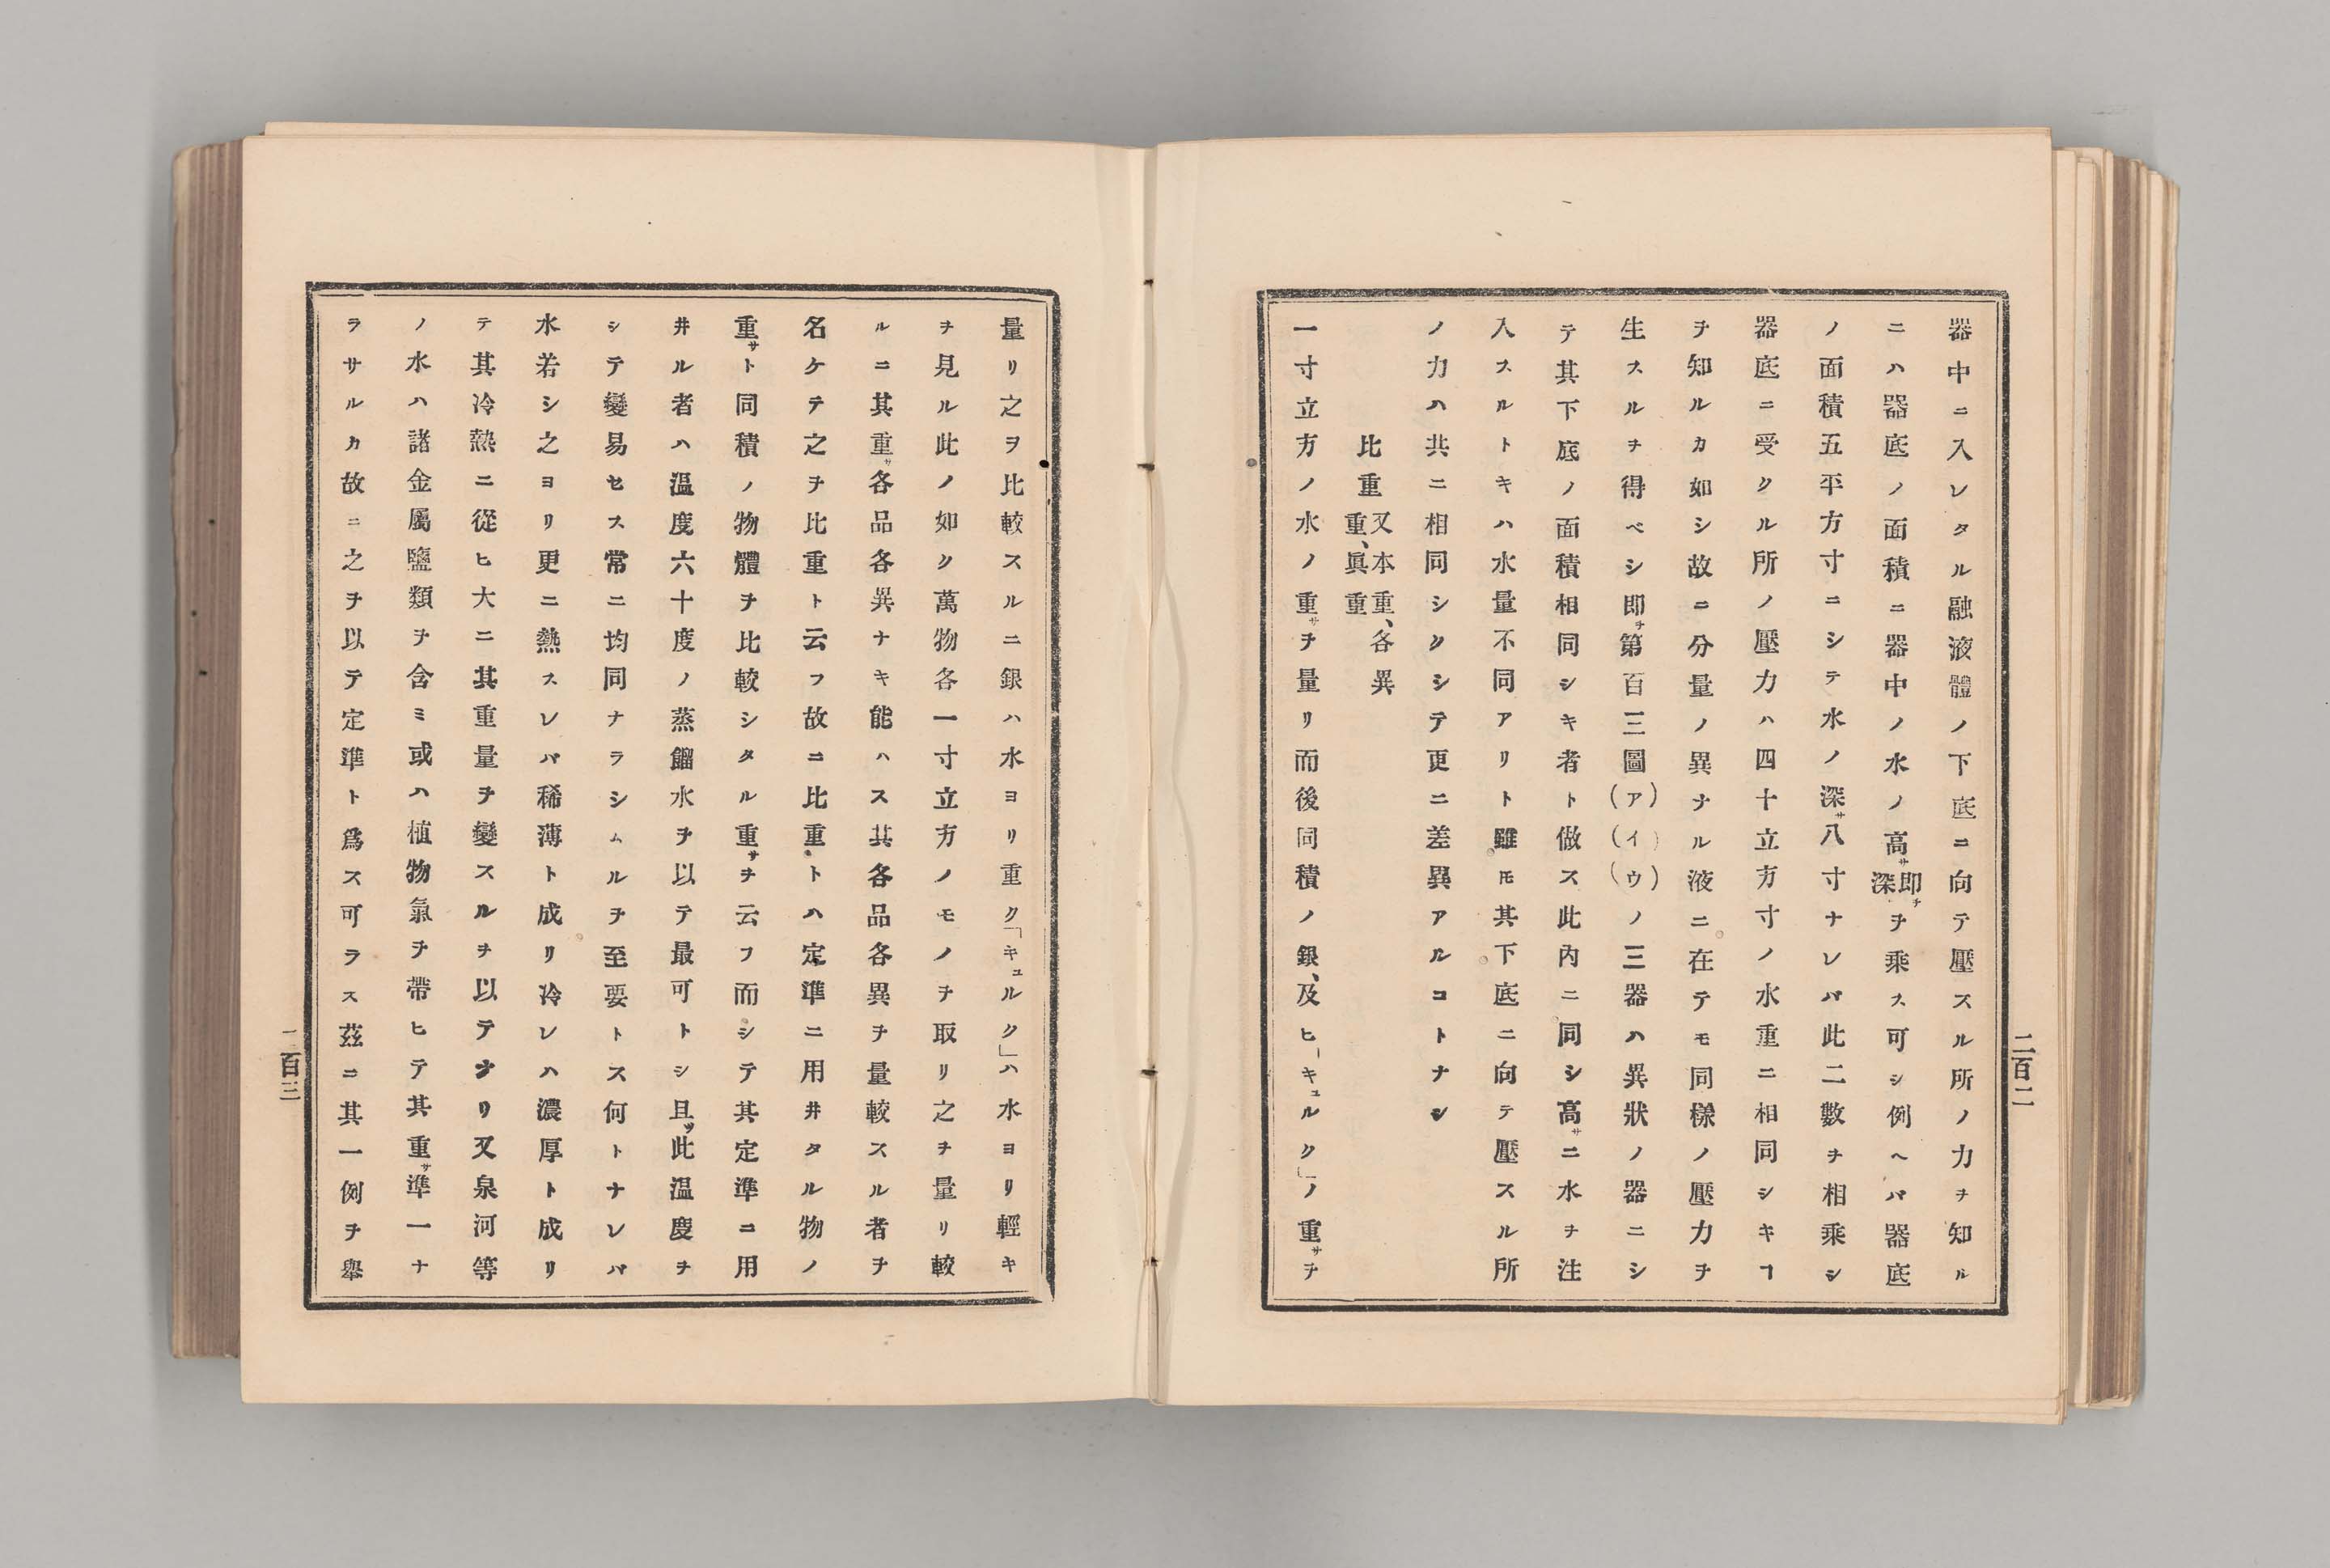 器中ニ入レタル融液體ノ下底ニ向テ壓スル所ノ力ヲ知ル
ニハ器底ノ面積ニ器中ノ水ノ高サ即チ深ヲ乘ス可シ例ヘバ器底
ノ面積五平方寸ニシテ水ノ深サ八寸ナレバ此二數ヲ相乘シ
器底ニ受クル所ノ壓力ハ四十立方寸ノ水重ニ相同シキヿ
ヲ知ルカ如シ故ニ分量ノ異ナル液ニ在テモ同樣ノ壓力ヲ
生スルヲ得ベシ即チ第百三圖(ア)(イ)(ウ)ノ三器ハ異狀ノ器ニシ
テ其下底ノ面積相同シキ者ト做ス此內ニ同シ高サニ水ヲ注
入スルトキハ水量不同アリト雖𪜈其下底ニ向テ壓スル所
ノ力ハ共ニ相同シクシテ更ニ差異アルコトナシ
比重又本重、各異重、眞重
一寸立方ノ水ノ重サヲ量リ而後同積ノ銀、及ヒ「キュルク」ノ重サヲ
二百二
量リ之ヲ比較スルニ銀ハ水ヨリ重ク「キュルク」ハ水ヨリ輕キ
ヲ見ル此ノ如ク萬物各一寸立方ノモノヲ取リ之ヲ量リ較
ルニ其重サ各品各異ナキ能ハス其各品各異ヲ量較スル者ヲ
名ケテ之ヲ比重ト云フ故ニ比重トハ定準ニ用井タル物ノ
重サト同積ノ物體ヲ比較シタル重サヲ云フ而シテ其定準ニ用
井ル者ハ溫度六十度ノ蒸餾水ヲ以テ最可トシ且ツ此溫度ヲ
シテ變易セス常ニ均同ナラシムルヲ至要トス何トナレバ
水若シ之ヨリ更ニ熱スレバ稀薄ト成リ冷レハ濃厚ト成リ
テ其冷熱ニ從ヒ大ニ其重量ヲ變スルヲ以テナリ又泉河等
ノ水ハ諸金屬鹽類ヲ含ミ或ハ植物氣ヲ帶ヒテ其重サ準一ナ
ラサルカ故ニ之ヲ以テ定準ト爲ス可ラス茲ニ其一例ヲ擧
二百三